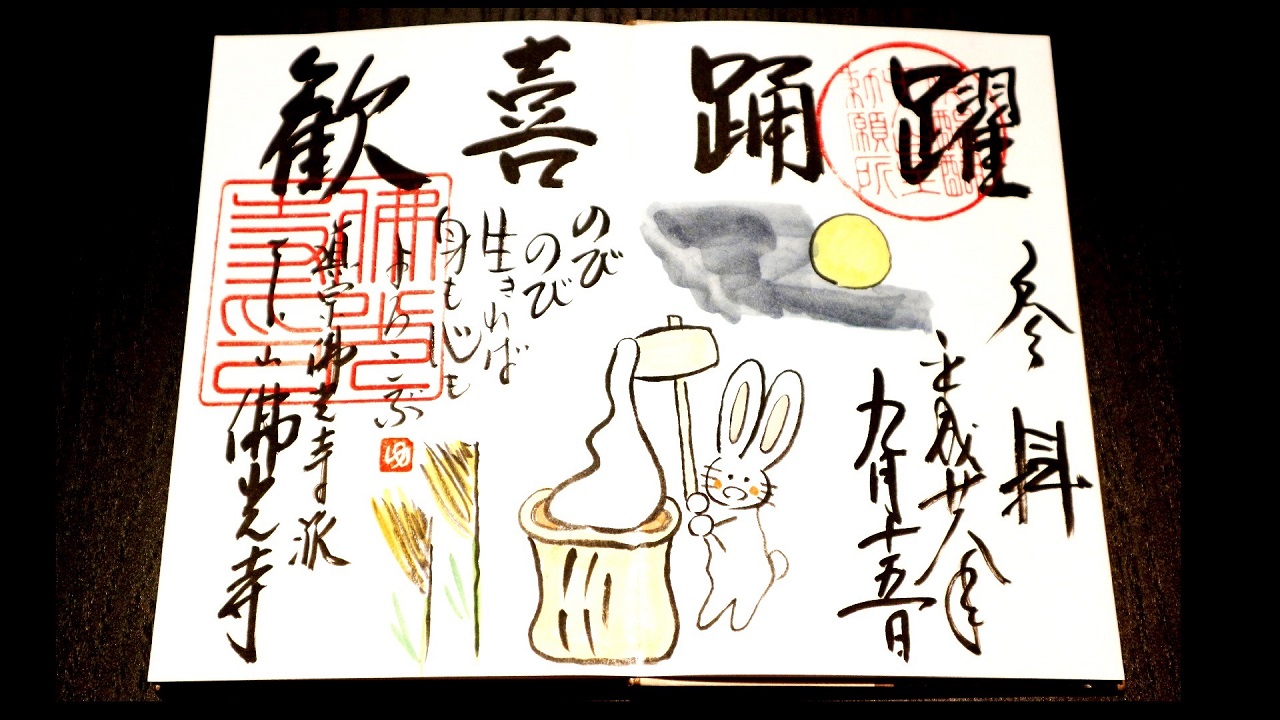 歓喜踊躍
参拝
平成廿八年
九月十五日
のび
のび
生きれば
身も心も
よろこぶ
真宗佛光寺派
山 佛光寺
勅願所